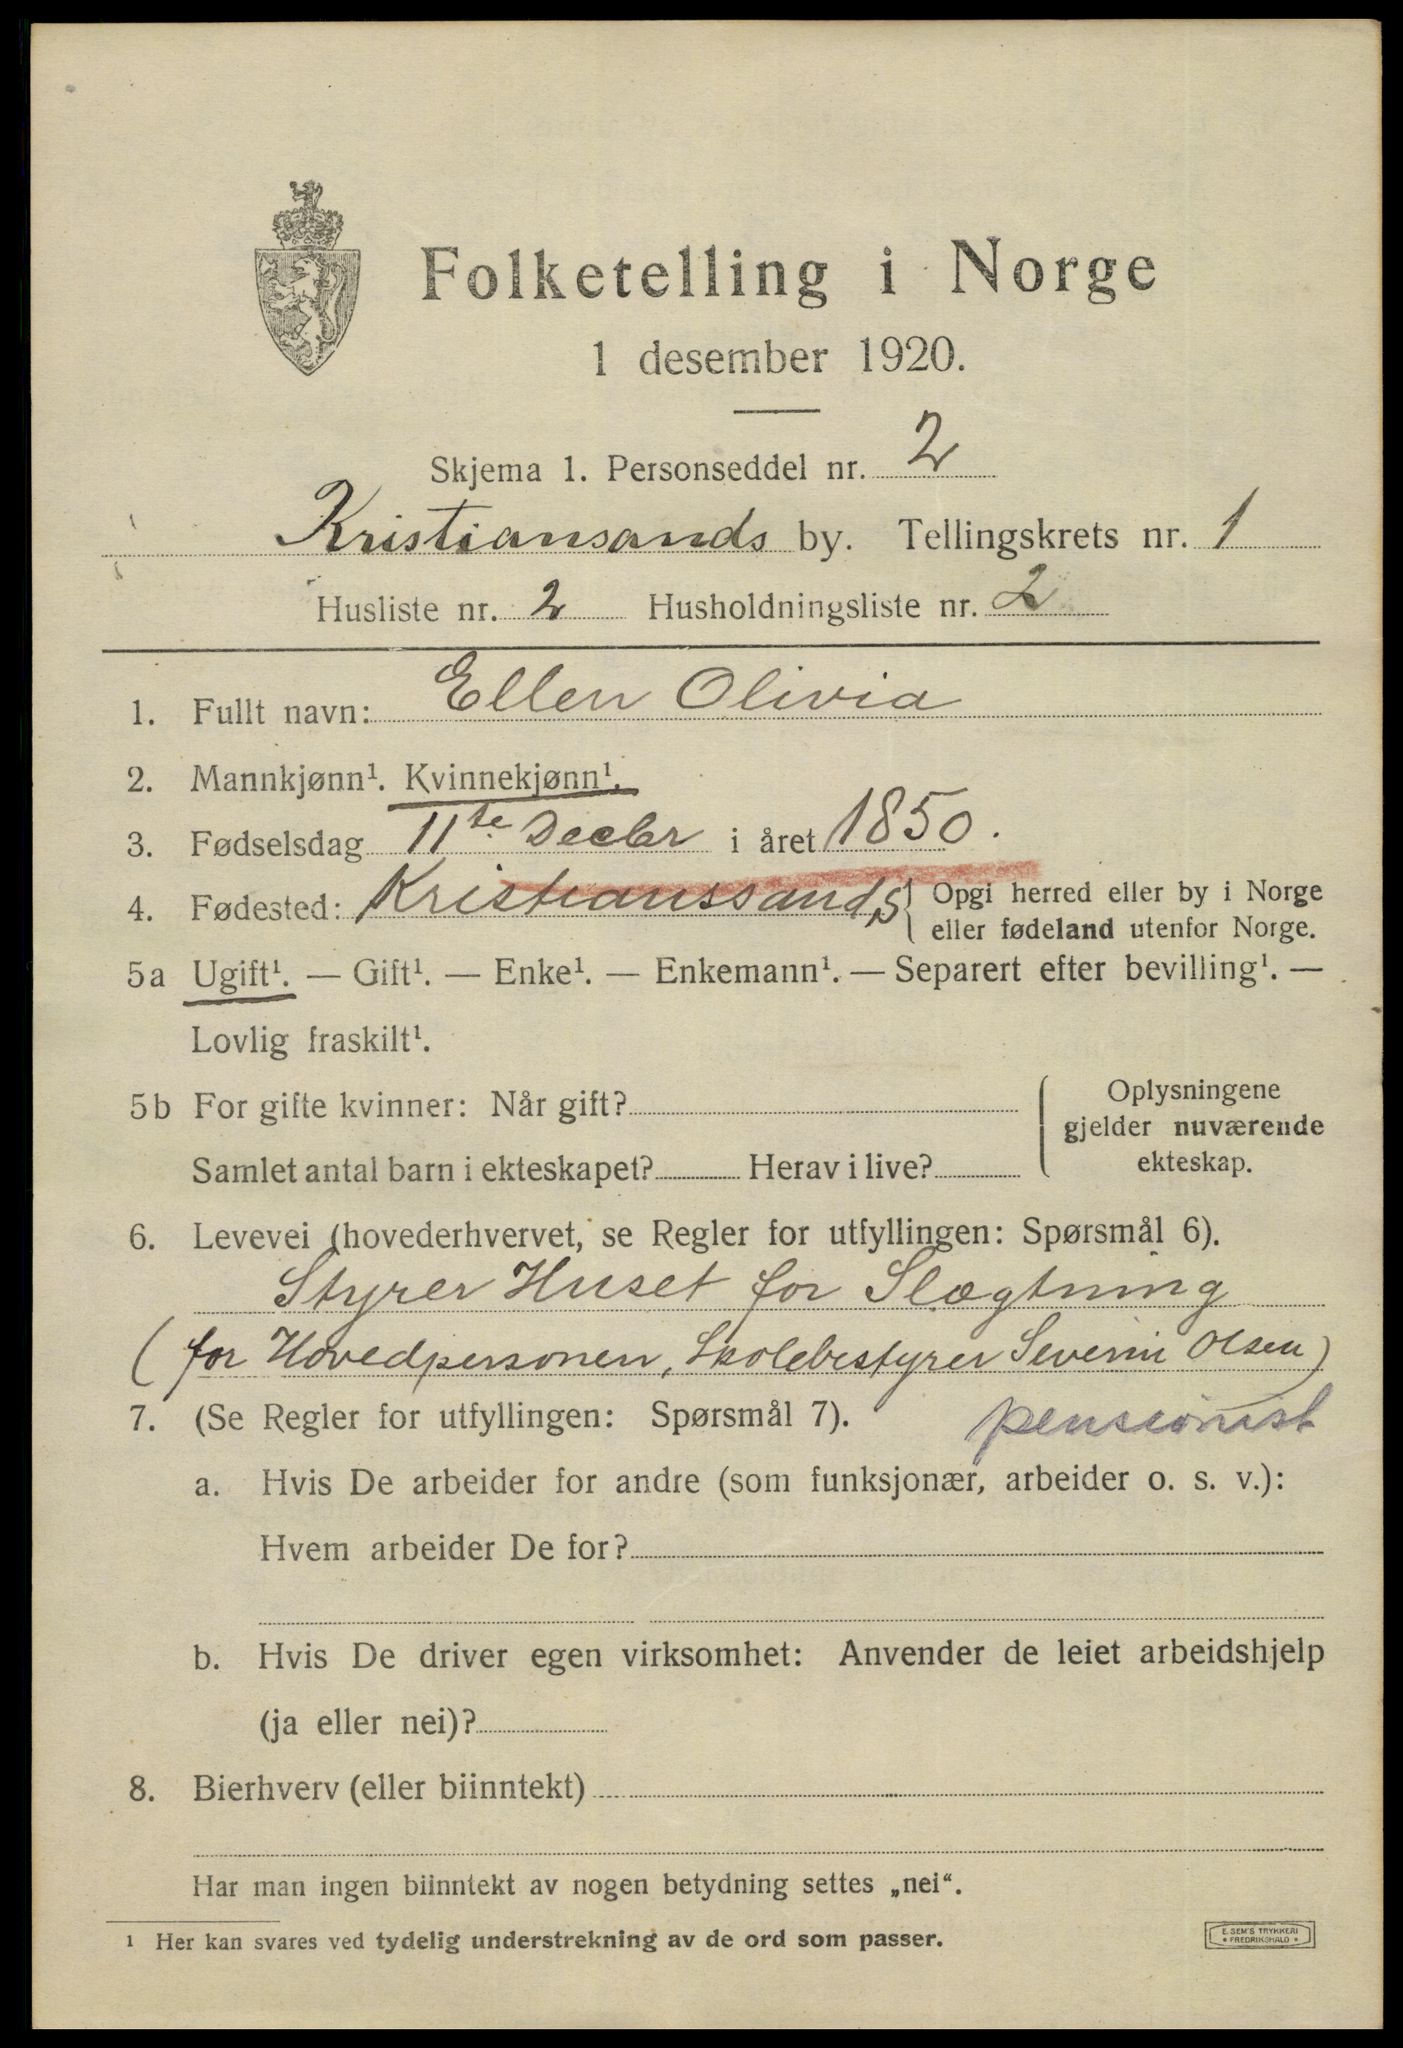 Folketelling i Norge
1 desember 1920.
Skjema 1. Personseddel nr. 2
Kristiansands by. Tellingskrets nr. 1
Husliste nr. 2 Husholdningsliste nr. 2
1. Fullt navn: Ellen Olivia
2. Mannkjønn¹. Kvinnekjønn¹.
3. Fødselsdag 11te Decbr i året 1850.
4. Fødested: Kristianssands { Opgi herred eller by i Norge
eller fødeland utenfor Norge.
5a Ugift¹. — Gift¹. — Enke¹. — Enkemann¹. — Separert efter bevilling¹. —
Lovlig fraskilt¹.
5b For gifte kvinner: Når gift?
Samlet antal barn i ekteskapet? Herav i live?
Oplysningene
gjelder nuværende
ekteskap.
6. Levevei (hovederhvervet, se Regler for utfyllingen: Spørsmål 6).
Styrer Huset for Slægtning
(for Hovedpersonen, Skolebestyrer Severin Olsen)
7. (Se Regler for utfyllingen: Spørsmål 7). pensionist
a. Hvis De arbeider for andre (som funksjonær, arbeider o. s. v.):
Hvem arbeider De for?
b. Hvis De driver egen virksomhet: Anvender de leiet arbeidshjelp
(ja eller nei)?
8. Bierhverv (eller biinntekt)
Har man ingen biinntekt av nogen betydning settes „nei“.
¹ Her kan svares ved tydelig understrekning av de ord som passer.
E. SEM'S TRYKKERI
• FREDRIKSHALD •